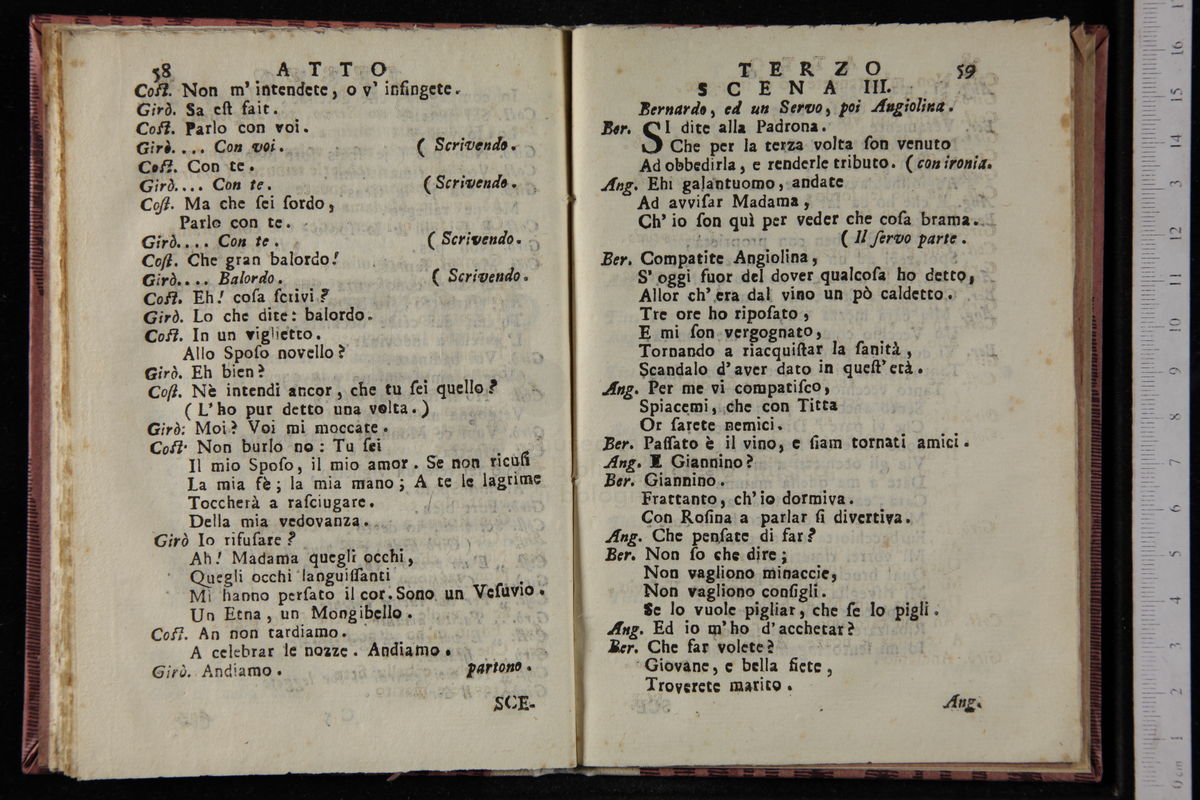 58 ATTO
Cost. Non m' intendete, o v' infingete.
Girò. Sa est fait.
Cost. Parlo con voi.
Girò.... Con voi. ( Scrivendo.
Cost. Con te.
Girò.... Con te. ( Scrivendo.
Cost. Ma che sei sordo,
Parlo con te.
Girò.... Con te. ( Scrivendo.
Cost. Che gran balordo!
Girò.... Balordo. ( Scrivendo.
Cost. Eh! cosa scrivi?
Girò. Lo che dite: balordo.
Cost. In un viglietto.
Allo Sposo novello?
Girò. Eh bien?
Cost. Nè intendi ancor, che tu sei quello?
( L'ho pur detto una volta.)
Girò: Moi? Voi mi moccate.
Cost. Non burlo no: Tu sei
Il mio Sposo, il mio amor. Se non ricusi
La mia fè; la mia mano; A te le lagrime
Toccherà a rasciugare.
Della mia vedovanza.
Girò Io rifusare?
Ah! Madama quegli occhi,
Quegli occhi languissanti
Mi hanno persato il cor. Sono un Vesuvio.
Un Etna, un Mongibello.
Cost. An non tardiamo.
A celebrar le nozze. Andiamo.
Girò. Andiamo. partono.
SCE-
TERZO 59
SCENA III.
Bernardo, ed un Servo, poi Angiolina.
Ber. SI dite alla Padrona.
Che per la terza volta son venuto
Ad obbedirla, e renderle tributo. ( con ironia.
Ang. Ehi galantuomo, andate
Ad avvisar Madama,
Ch' io son quì per veder che cosa brama.
( Il servo parte.
Ber. Compatite Angiolina,
S' oggi fuor del dover qualcosa ho detto,
Allor ch' era dal vino un pò caldetto.
Tre ore ho riposato,
E mi son vergognato,
Tornando a riacquistar la sanità,
Scandalo d' aver dato in quest' età.
Ang. Per me vi compatisco,
Spiacemi, che con Titta
Or sarete nemici.
Ber. Passato è il vino, e siam tornati amici.
Ang. E Giannino?
Ber. Giannino.
Frattanto, ch' io dormiva.
Con Rosina a parlar si divertiva.
Ang. Che pensate di far?
Ber. Non so che dire;
Non vagliono minaccie,
Non vagliono consigli.
Se lo vuole pigliar, che se lo pigli.
Ang. Ed io m'ho d'acchetar?
Ber. Che far volete?
Giovane, e bella siete,
Troverete marito.
Ang.